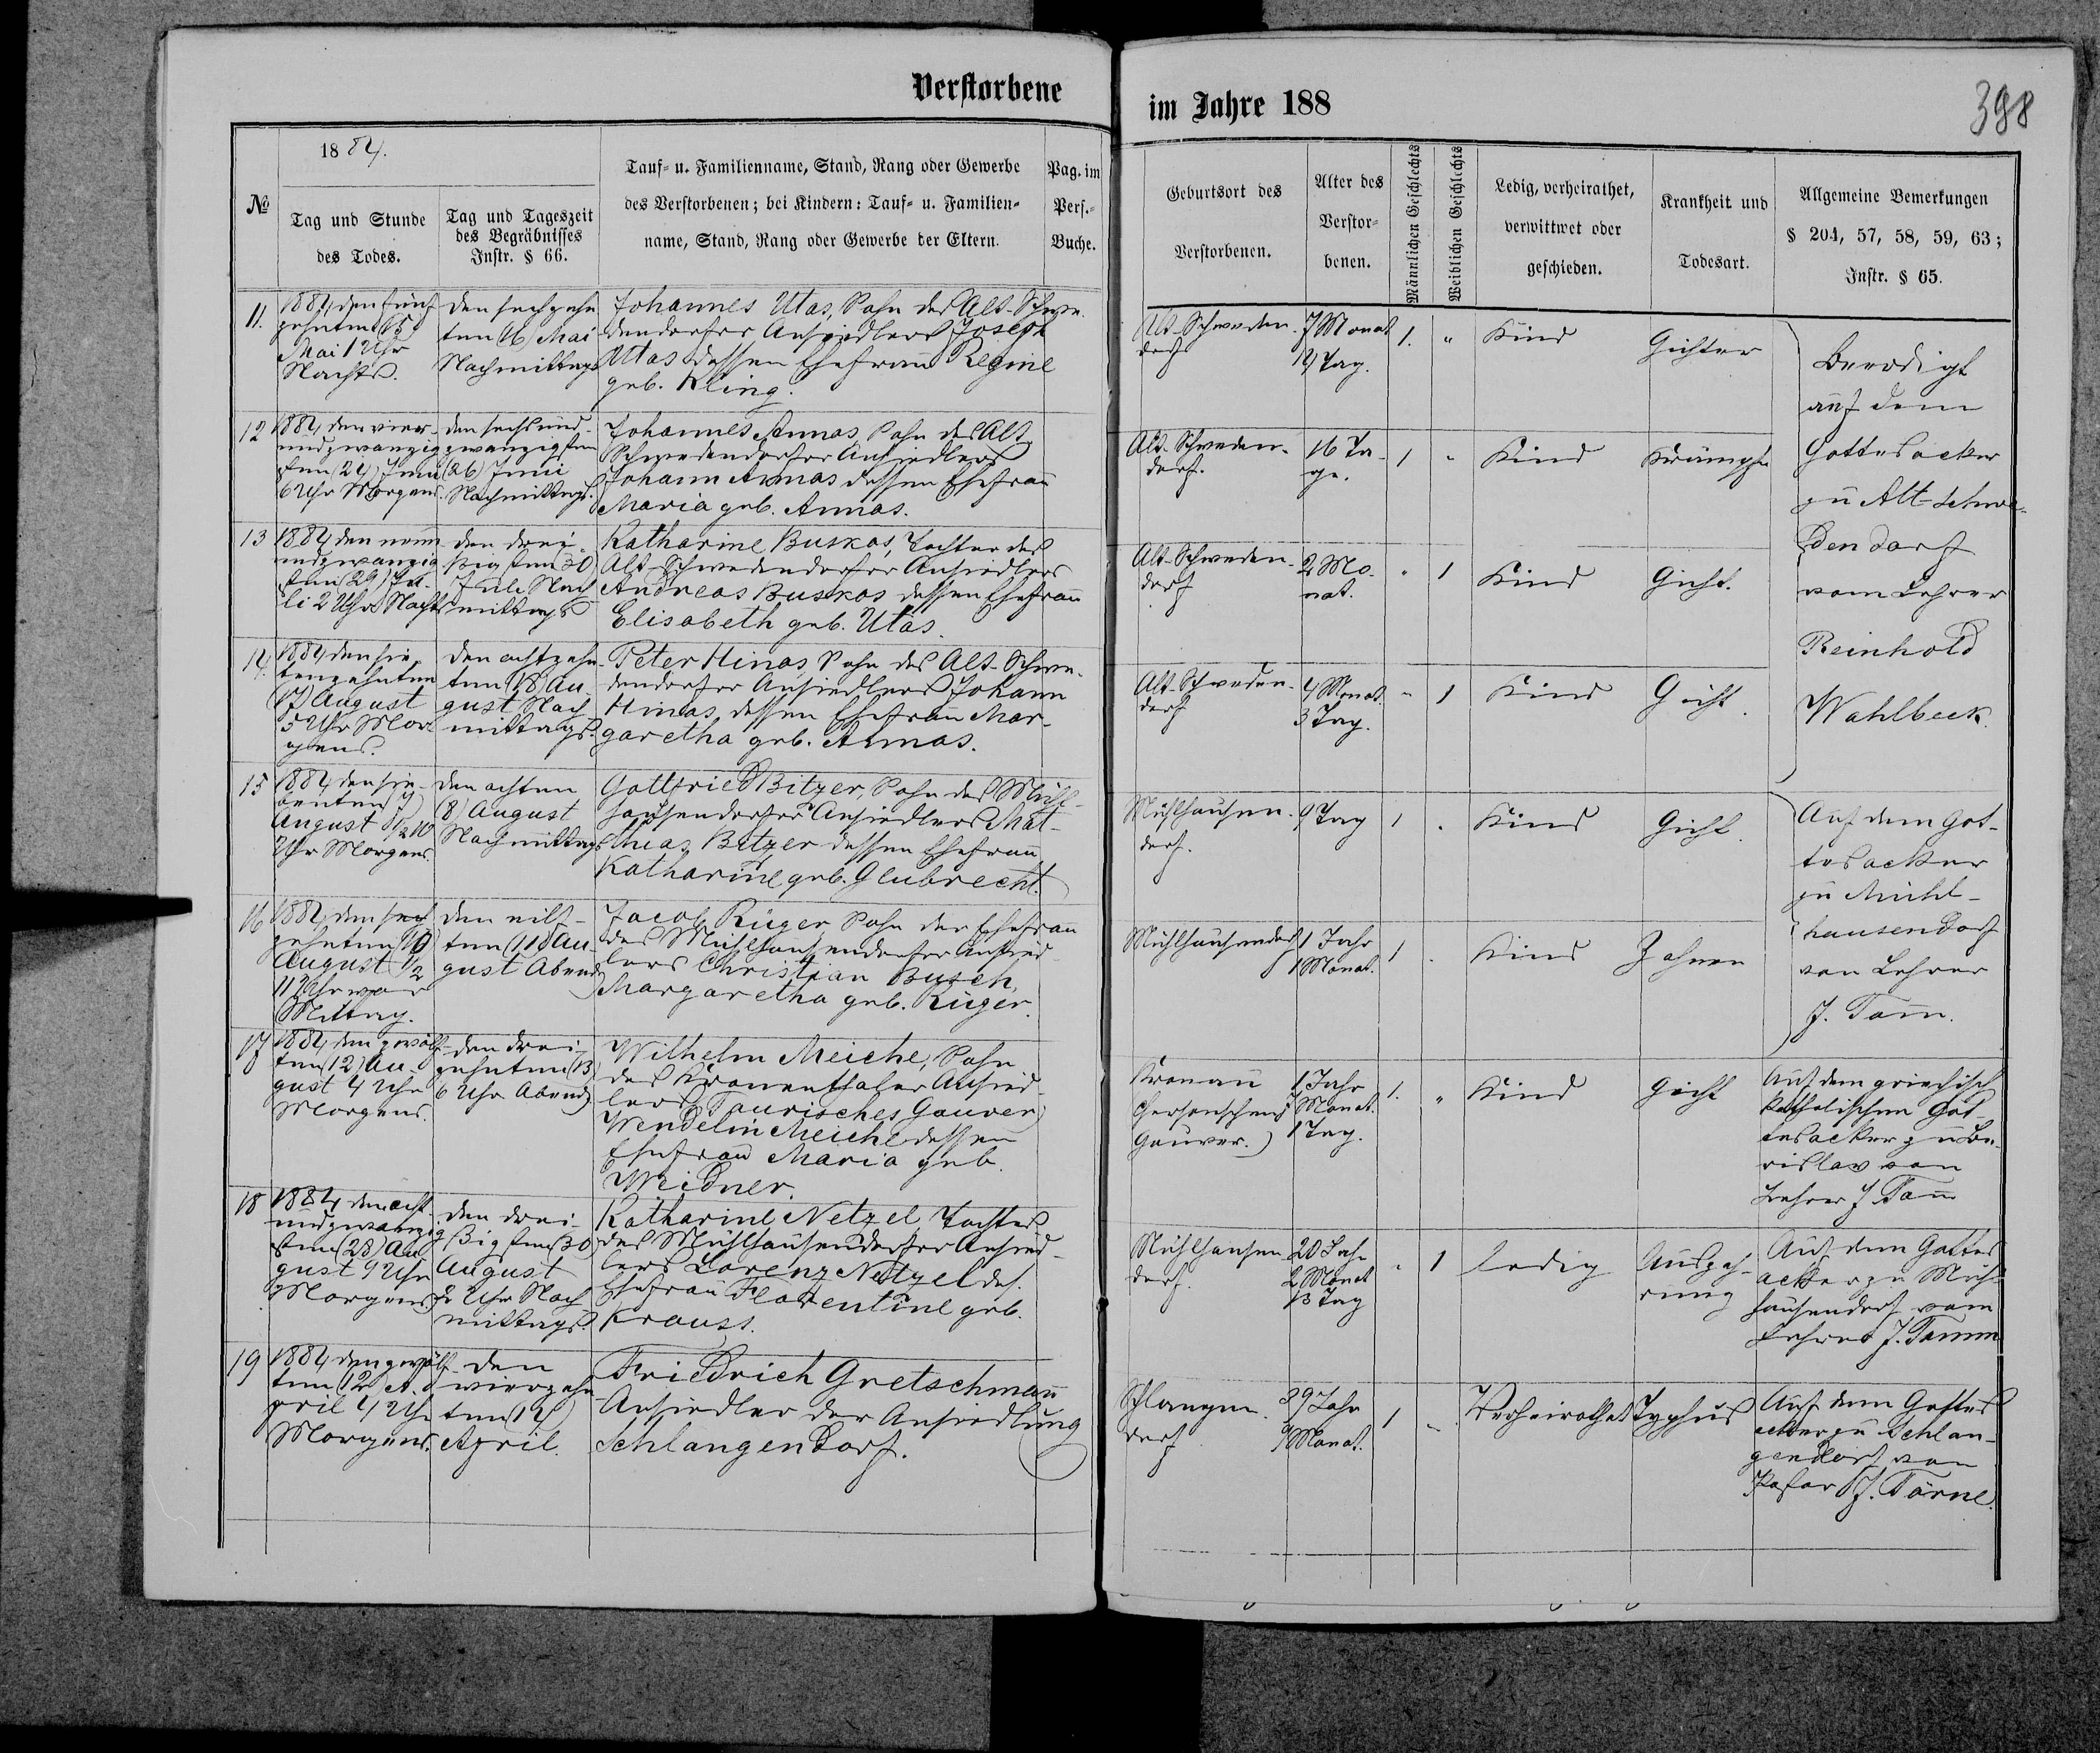 Verstorbene
im Jahre 188
398
№
1884.
Tag und Stunde
des Todes.
Tag und Tageszeit
des Begräbnisses
Instr. § 66.
Tauf- u. Familienname, Stand, Rang oder Gewerbe
des Verstorbenen; bei Kindern: Tauf- u. Familien-
name, Stand, Rang oder Gewerbe der Eltern.
Pag. im
Pers.-
Buche.
Geburtsort des
Verstorbenen.
Alter des
Verstor-
benen.
Männlichen Geschlechts
Weiblichen Geschlechts
Ledig, verheirathet,
verwittwet oder
geschieden.
Krankheit und
Todesart.
Allgemeine Bemerkungen
§ 204, 57, 58, 59, 63;
Instr. § 65.
11.
1884, den fünf-
zehnten (15)
Mai 1 Uhr
Nachts.
den sechzehn
ten (16) Mai
Nachmittags
Johannes Utas, Sohn des Alt-Schwe-
dendorfer Ansiedlers Joseph
Utas dessen Ehefrau Regine
geb. Kling.
Alt-Schweden-
dorf
7 Monat
Tag.
1.
"
Kind
Gichter
Beerdigt
auf dem
Gottesacker
zu Alt-Schwe-
dendorf
vom Lehrer
Reinhold
Wahlbeck.
12
1884 den vier-
undzwanzig
sten (24) Juni
6 Uhr Morgens.
den sechsund-
zwanzigsten
(26) Juni
Nachmittags.
Johannes Annas, Sohn des Alt
Schwedendorfer Ansiedlers
Johann Annas dessen Ehefrau
Maria geb. Annas.
Alt-Schweden-
dorf.
16 Ta-
ge.
1
"
Kind
Krämpfe
13
1884 den neun
undzwanzig
sten (29) Ju-
li 2 Uhr Nachts
den drei-
ßigsten (30)
Juli Nach
mittags
Katharine Buskas, Tochter des
Alt-Schwedendorfer Ansiedlers
Andreas Buskas dessen Ehefrau
Elisabeth geb. Utas.
Alt-Schweden-
dorf
2 Mo-
nat.
"
1
Kind
Gicht.
14.
1884 den sie-
benzehnten
(17) August
5 Uhr Mor
gens.
den achtzehn-
ten (18) Au-
gust Nach
mittags.
Peter Hinas Sohn des Alt-Schwe-
dendorfer Ansiedlers Johann
Hinas, dessen Ehefrau Mar-
garetha geb. Annas.
Alt-Schweden-
dorf
4 Monat
3 Tag.
"
1
Kind
Gicht.
15
1884 den sie-
benten (7)
August 1/2 10
Uhr Morgens.
den achten
(8) August
Nachmittags
Gottfried Bitzer, Sohn des Mühl-
hausendorfer Ansiedlers Mat-
thias Bitzer dessen Ehefrau
Katharine geb. Glubrecht.
Mühlhausen-
dorf.
9 Tag
1
"
Kind
Gicht.
Auf dem Got-
tesacker
zu Mühl-
hausendorf
von Lehrer
J. Tam̄.
16
zehnten (10)
August 1/2
11 Uhr vor
Mittag.
den eilf-
ten (11) Au-
gust Abends
Jacob Rüger Sohn der Ehefrau
des Mühlhausendorfer Ansied-
lers Christian Busch,
Margaretha geb. Rüger.
Mühlhausendorf
1 Jahr
1 Monat.
1
"
Kind
Zahnen
17
1884 den zwölf-
ten (12) Au-
gust 4 Uhr
Morgens.
den drei-
zehnten (13)
6 Uhr Abends
Wilhelm Meiche, Sohn
des Kronenthaler Ansied-
lers (Taurisches Gouver.)
Wendelin Meiche dessen
Ehefrau Maria geb.
Weidner.
Kronau
Chersonsches
Gouver.)
1 Jahr
Monat.
1 Tag.
1.
"
Kind
Gicht
Auf dem griechisch
katholischen Got-
tesacker zu Be-
rislav von
Lehrer J Tam̄
18
1884 den acht
undzwanzig
sten (28) Au
gust 9 Uhr
Morgens
den drei-
ßigsten (30)
August
2 Uhr Nach
mittags.
Katharine Netzel, Tochter
des Mühlhausendorfer Ansied-
lers Lorenz Netzel des.
Ehefrau Florentine geb.
Krauss.
Mühlhausen-
dorf.
20 Jahr
2 Monat
13 Tag
"
1
ledig
Auszeh-
rung
Auf dem Gottes
acker zu Mühl-
hausendorf vom
Lehrer J. Tamm
19
1884 den zwölf-
ten (12) A-
pril 4 Uhr
Morgens.
den
vierzehn-
ten (14)
April.
Friedrich Gretschmann
Ansiedler der Ansiedlung
Schlangendorf.
Schlangen-
dorf
39 Jahr
9 Monat.
1
"
Verheirathet
Typhus
Auf dem Gottes
acker zu Schlan-
gendorf von
Pastor J. Törne.